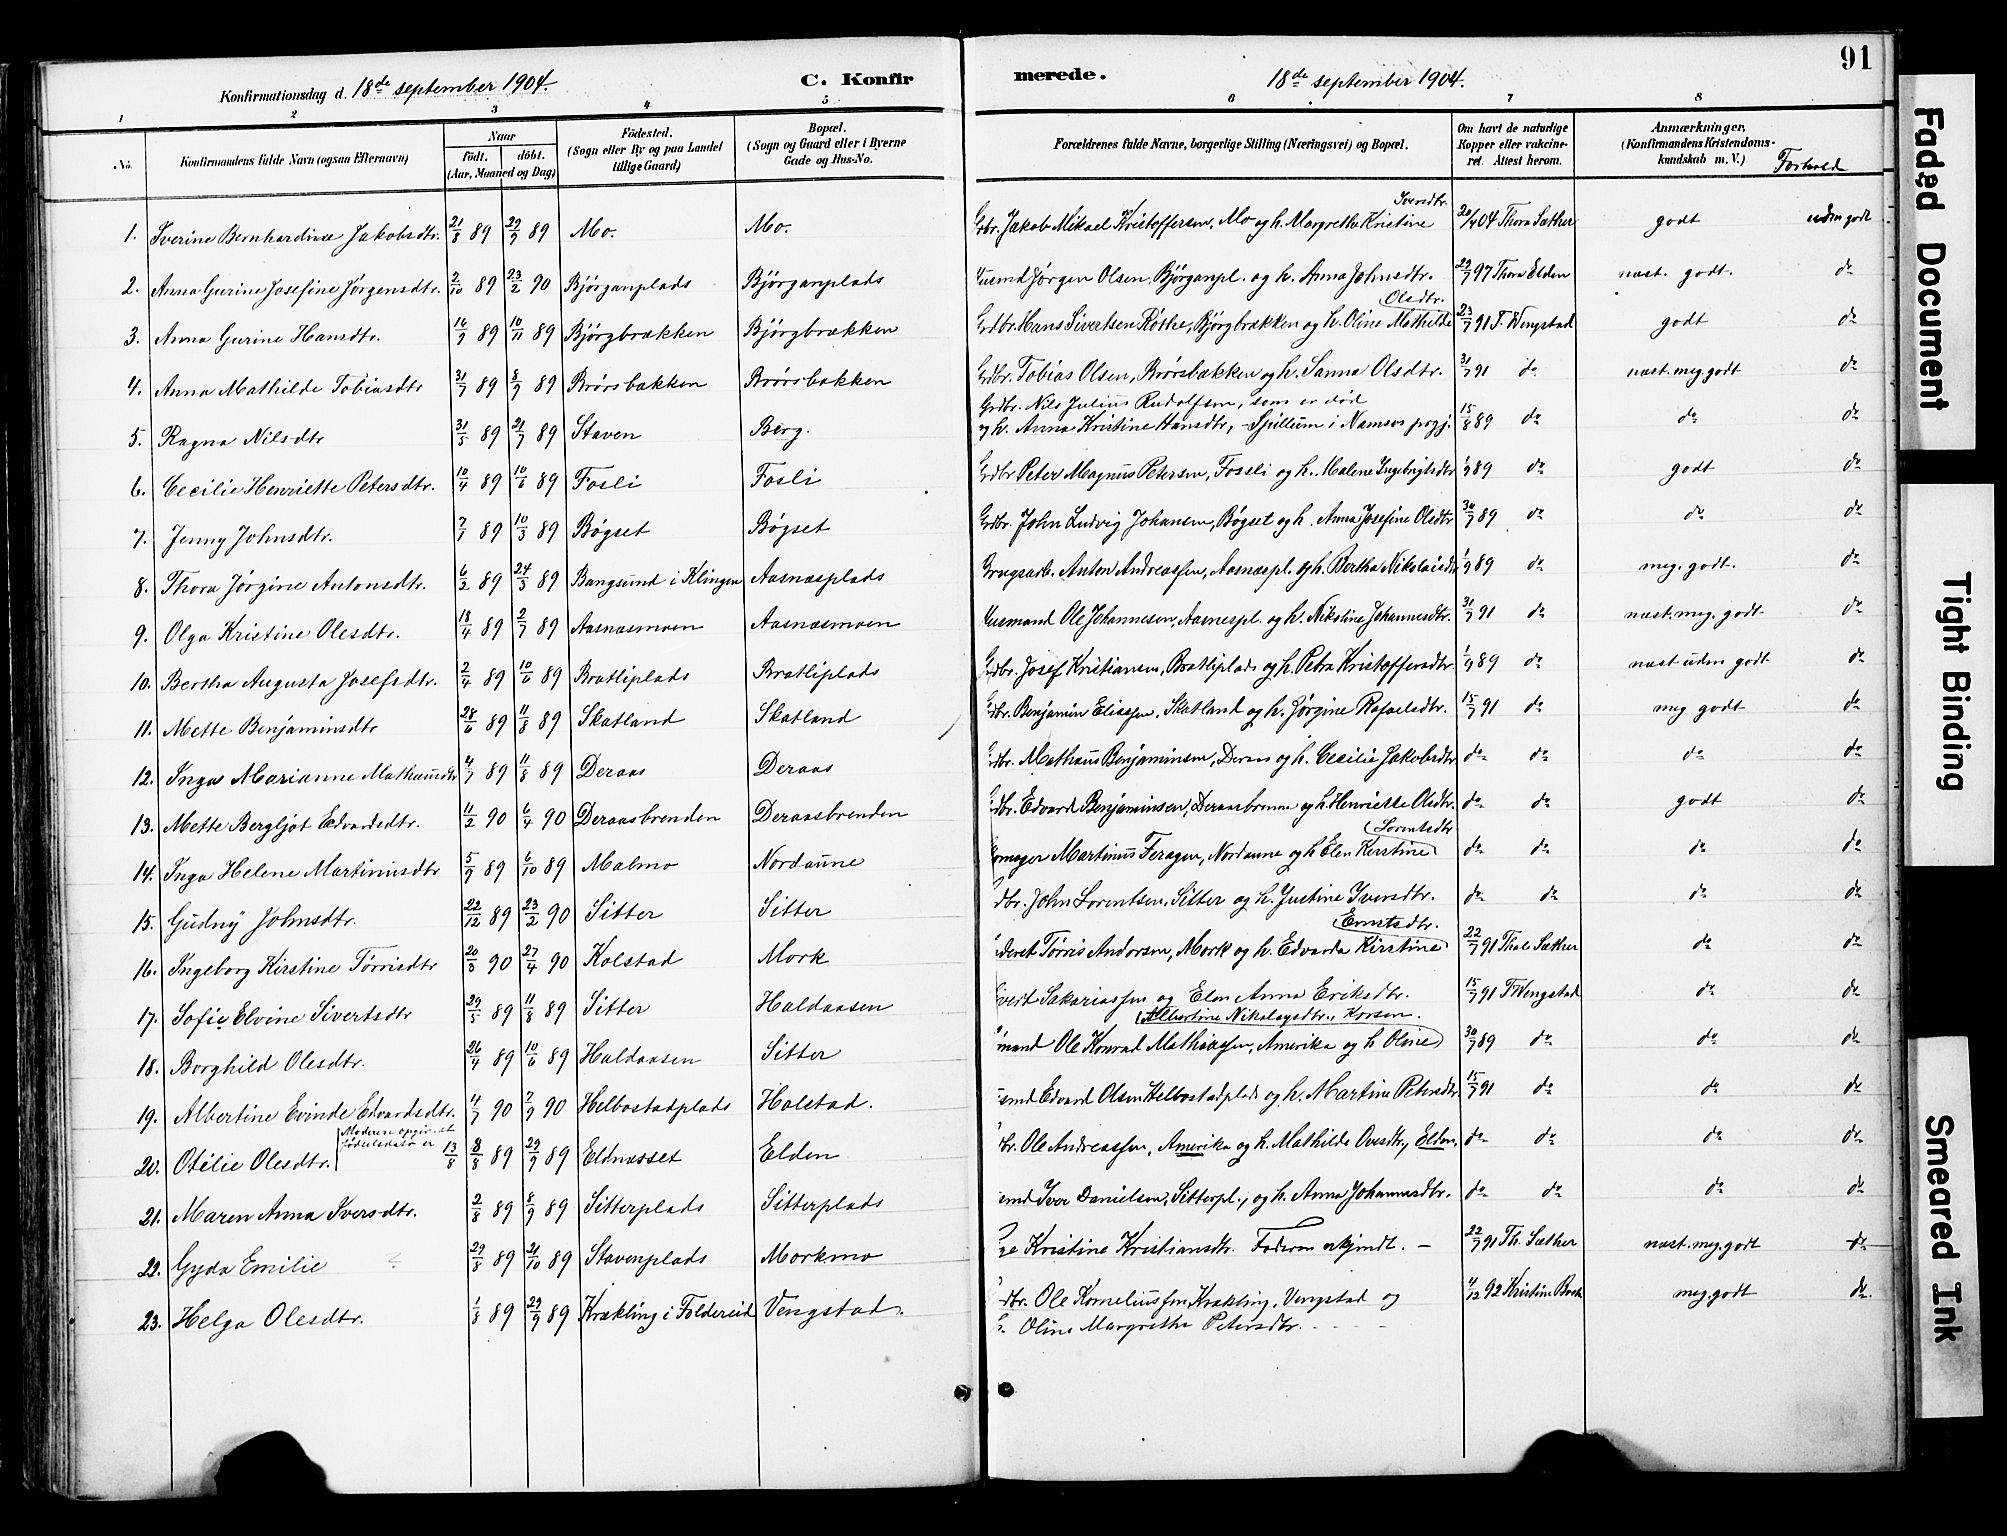 91
Konfirmationsdag d. 18de september 1904. C. Konfirmerede. 18de september 1904.
1 2 3 4 5 6 7 8
No. Konfirmandens fulde Navn (ogsaa Efternavn) Naar født. døbt. (Aar, Maaned og Dag) Födested. (Sogn eller By og paa Landet tillige Gaard) Bopæl. (Sogn og Gaard eller i Byerne Gade og Hus-No. Forældrenes fulde Navne, borgerlige Stilling (Næringsvei) og Bopæl. Om havt de naturlige Kopper eller vakcineret. Attest herom. Anmærkninger. (Konfirmandens Kristendomskundskab m. V.) Forhold
1. Iverine Bernhardine Jakobsdtr. 21/8 89 29/9 89 Mo. Mo. Grbr. Jakob Mikael Kristoffersen, Mo og h. Margrethe Kristine Iversdtr. 20/4 04 Thora Sæther godt udm godt
2. Anna Gurine Josefine Jørgensdtr. 2/10 89 23/2 90 Bjørganplads Bjørganplads Husmd Jørgen Olsen, Bjørganpl. og h. Anna Johnsdtr. 29/7 97 Thora Elden næst. godt. do
3. Anna Gurine Hansdtr. 16/9 89 10/11 89 Bjørgbrækken Bjørgbrækken Grdbr. Hans Sivertsen Røthe, Bjørgbrækken og h. Oline Mathilde Olsdtr. 23/7 91 T. Wengstad godt do
4. Anna Mathilde Tobiasdtr 31/7 89 8/9 89 Brørsbakken Brørsbakken Grdbr. Tobias Olsen, Brørsbækken og h. Sanna Olsdtr. 31/7 91 do næst. meg. godt do
5. Ragna Nilsdtr 31/5 89 21/7 89 Staven Berg. Grdbr. Nils Julius Rudolfsen, som er død
og h. Anna Kristine Hansdtr, - Spillum i Namsos prgj. 15/8 89 do do do
6. Cecilie Henriette Petersdtr. 10/4 89 10/6 89 Fosli Fosli Grdbr Peter Magnus Petersen, Fossli og h. Malene Ingebrigtsdtr 1/9 89 do godt do
7. Jenny Johnsdtr. 7/1 89 10/3 89 Bøgset Bøgset Grdbr. John Ludvig Johansen, Bøgset og h. Anna Josefine Olsdtr 30/7 89 do do do
8. Thora Jørgine Antonsdtr. 6/2 89 24/3 89 Bangsund i Klingen Aasnæsplads Brugsarb. Anton Andreassen, Aasnæspl. og h. Bertha Nikolaisdtr 1/9 89 do meg. godt. do
9. Olga Kristine Olesdtr. 18/4 89 2/7 89 Aasnæsmoen Aasnæsmoen Husmand Ole Johannesen, Aasnespl. og h. Nikoline Johannesdtr. 31/7 91 do næst. meg. godt. do
10. Bertha Augusta Josefsdtr. 2/4 89 10/6 89 Bratliplads Bratliplads Grdbr. Josef Kristiansen, Bratliplads og h. Petra Kristoffersdtr. 1/9 89 do næst udm godt do
11. Mette Benjaminsdtr 28/6 89 11/8 89 Skatland Skatland Grdbr. Benjamin Eliassen, Skatland og h. Jørgine Rafaelsdtr. 15/7 91 do meg godt do
12. Inga Marianne Mathausdtr 4/7 89 11/8 89 Deraas Deraas Grdbr. Mathæus Benjaminsen, Deraas og h. Cecilie Jakobsdtr do do do do
13. Mette Bergljot Edvardsdtr. 11/2 90 6/4 90 Deraasbrenden Deraasbrenden Grdbr. Edvard Benjaminsen, Deraasbrenne og h. Henriette Olsdtr. do do godt do
14. Inga Helene Martinusdtr 5/9 89 6/10 89 Malmo Nordaune Skomager Martinus Feragen, Nordaune og h. Elen Kerstine Lorentsdtr do do do do
15. Gudny Johnsdtr. 22/12 89 23/2 90 Sitter Sitter Grdbr. John Lorentsen, Sitter og h. Justine Iversdtr. do do do do
16. Ingeborg Kirstine Tørrisdtr 20/3 90 27/4 90 Kolstad Mork Føderet Tørris Andorsen, Mork og h. Edvarda Kirstine Erntsdtr. 22/7 91 Thale Sæther do do
17. Sofie Elvine Sivertsdtr 29/5 89 11/8 89 Sitter Haldaasen Sivert Sakariassen og Elen Anna Eriksdtr. 15/7 91 T Wengstad do do
18. Borghild Olesdtr. 26/4 89 10/6 89 Haldaasen Sitter mand Ole Konrad Mathiassen, Amerika og h Oline Albertine Nikolaysdtr., Korsen. 30/7 89 do do do
19. Albertine Evinde Edvardsdtr. 4/7 90 7/9 90 Helbostadplads Halstad. Husmd Edvard Olsen Helbostadplads og h. Martine Petersdtr 15/7 91 do do do
20. Otelie Olesdtr. Moderen opgir at fødselsdato er 13/8 8/8 89 29/9 89 Eldnæsset Elden Grdbr. Ole Andreassen, Amerika og h. Mathilde Ovesdtr, Elden. do do do do
21. Maren Anna Iversdtr. 2/8 89 8/9 89 Sitterplads Sitterplads Husmd Iver Danielsen, Sitterpl., og h. Anna Johannesdtr. do do do do
22. Gyda Emilie ? 29/8 89 21/10 89 Stavenplads Morkmo Pige Kristine Kristiansdtr. Faderen ukjendt. - 22/7 91 Th. Sæther næst. meg. godt do
23. Helga Olesdtr. 1/8 89 29/9 89 Krækling i Foldereid Vengstad. Grdbr. Ole Korneliussen Krækling, Vengstad og
h. Oline Margrethe Petersdtr. 4/12 92 Kristin Bach meg. godt do.
Faded Document
Tight Binding
Smeared Ink